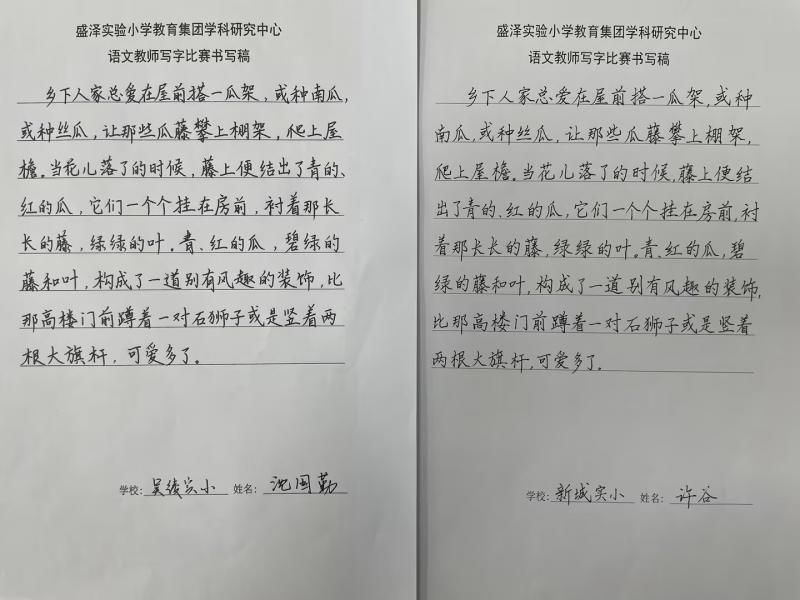 盛泽实验小学教育集团学科研究中心
语文教师写字比赛书写稿
乡下人家总爱在屋前搭一瓜架，或种南瓜，
或种丝瓜，让那些瓜藤攀上棚架，爬上屋
檐。当花儿落了的时候，藤上便结出了青的、
红的瓜，它们一个个挂在房前，衬着那长
长的藤，绿绿的叶。青、红的瓜，碧绿的
藤和叶，构成了一道别有风趣的装饰，比
那高楼门前蹲着一对石狮子或是竖着两
根大旗杆，可爱多了。
学校：吴绫实小 姓名：沈国勤
盛泽实验小学教育集团学科研究中心
语文教师写字比赛书写稿
乡下人家总爱在屋前搭一瓜架，或种
南瓜，或种丝瓜，让那些瓜藤攀上棚架，
爬上屋檐。当花儿落了的时候，藤上便结
出了青的、红的瓜，它们一个个挂在房前，衬
着那长长的藤，绿绿的叶。青、红的瓜，碧
绿的藤和叶，构成了一道别有风趣的装饰，
比那高楼门前蹲着一对石狮子或是竖着
两根大旗杆，可爱多了。
学校：新城实小 姓名：许谷